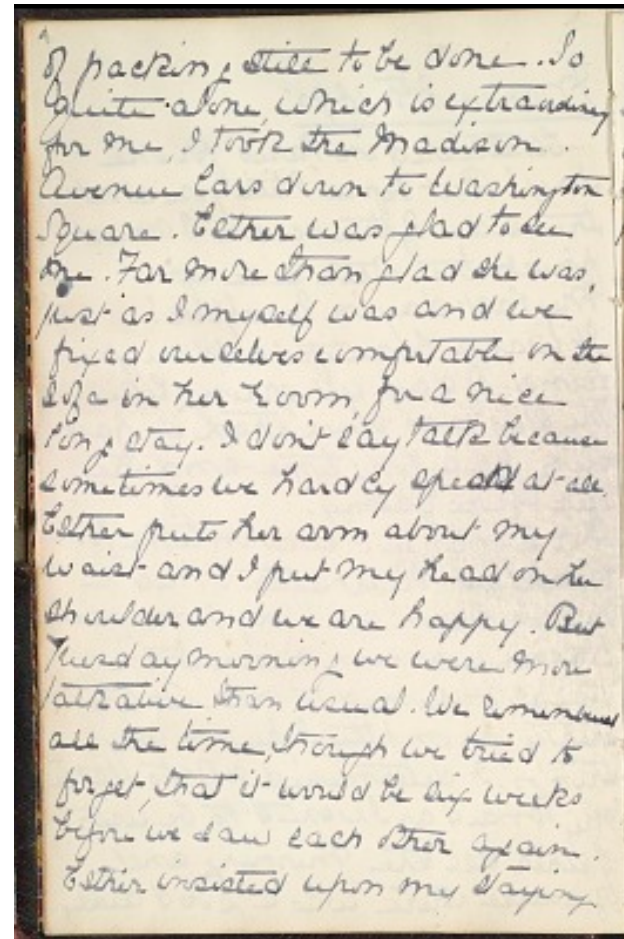 of packing still to be done. So
quite alone, which is extraordinary
for me, I took the Madison
Avenue Cars down to Washington
Square. Esther was glad to see
me. Far more than glad she was,
just as I myself was and we
fixed ourselves comfortable on the
sofa in her room, for a nice
long stay. I don't say talk because
sometimes we hardly speak at all.
Esther puts her arm about my
waist and I put my head on her
shoulder and we are happy. But
Tuesday morning we were more
talkative than usual. We remembered
all the time, though we tried to
forget, that it would be six weeks
before we saw each other again.
Esther insisted upon my staying